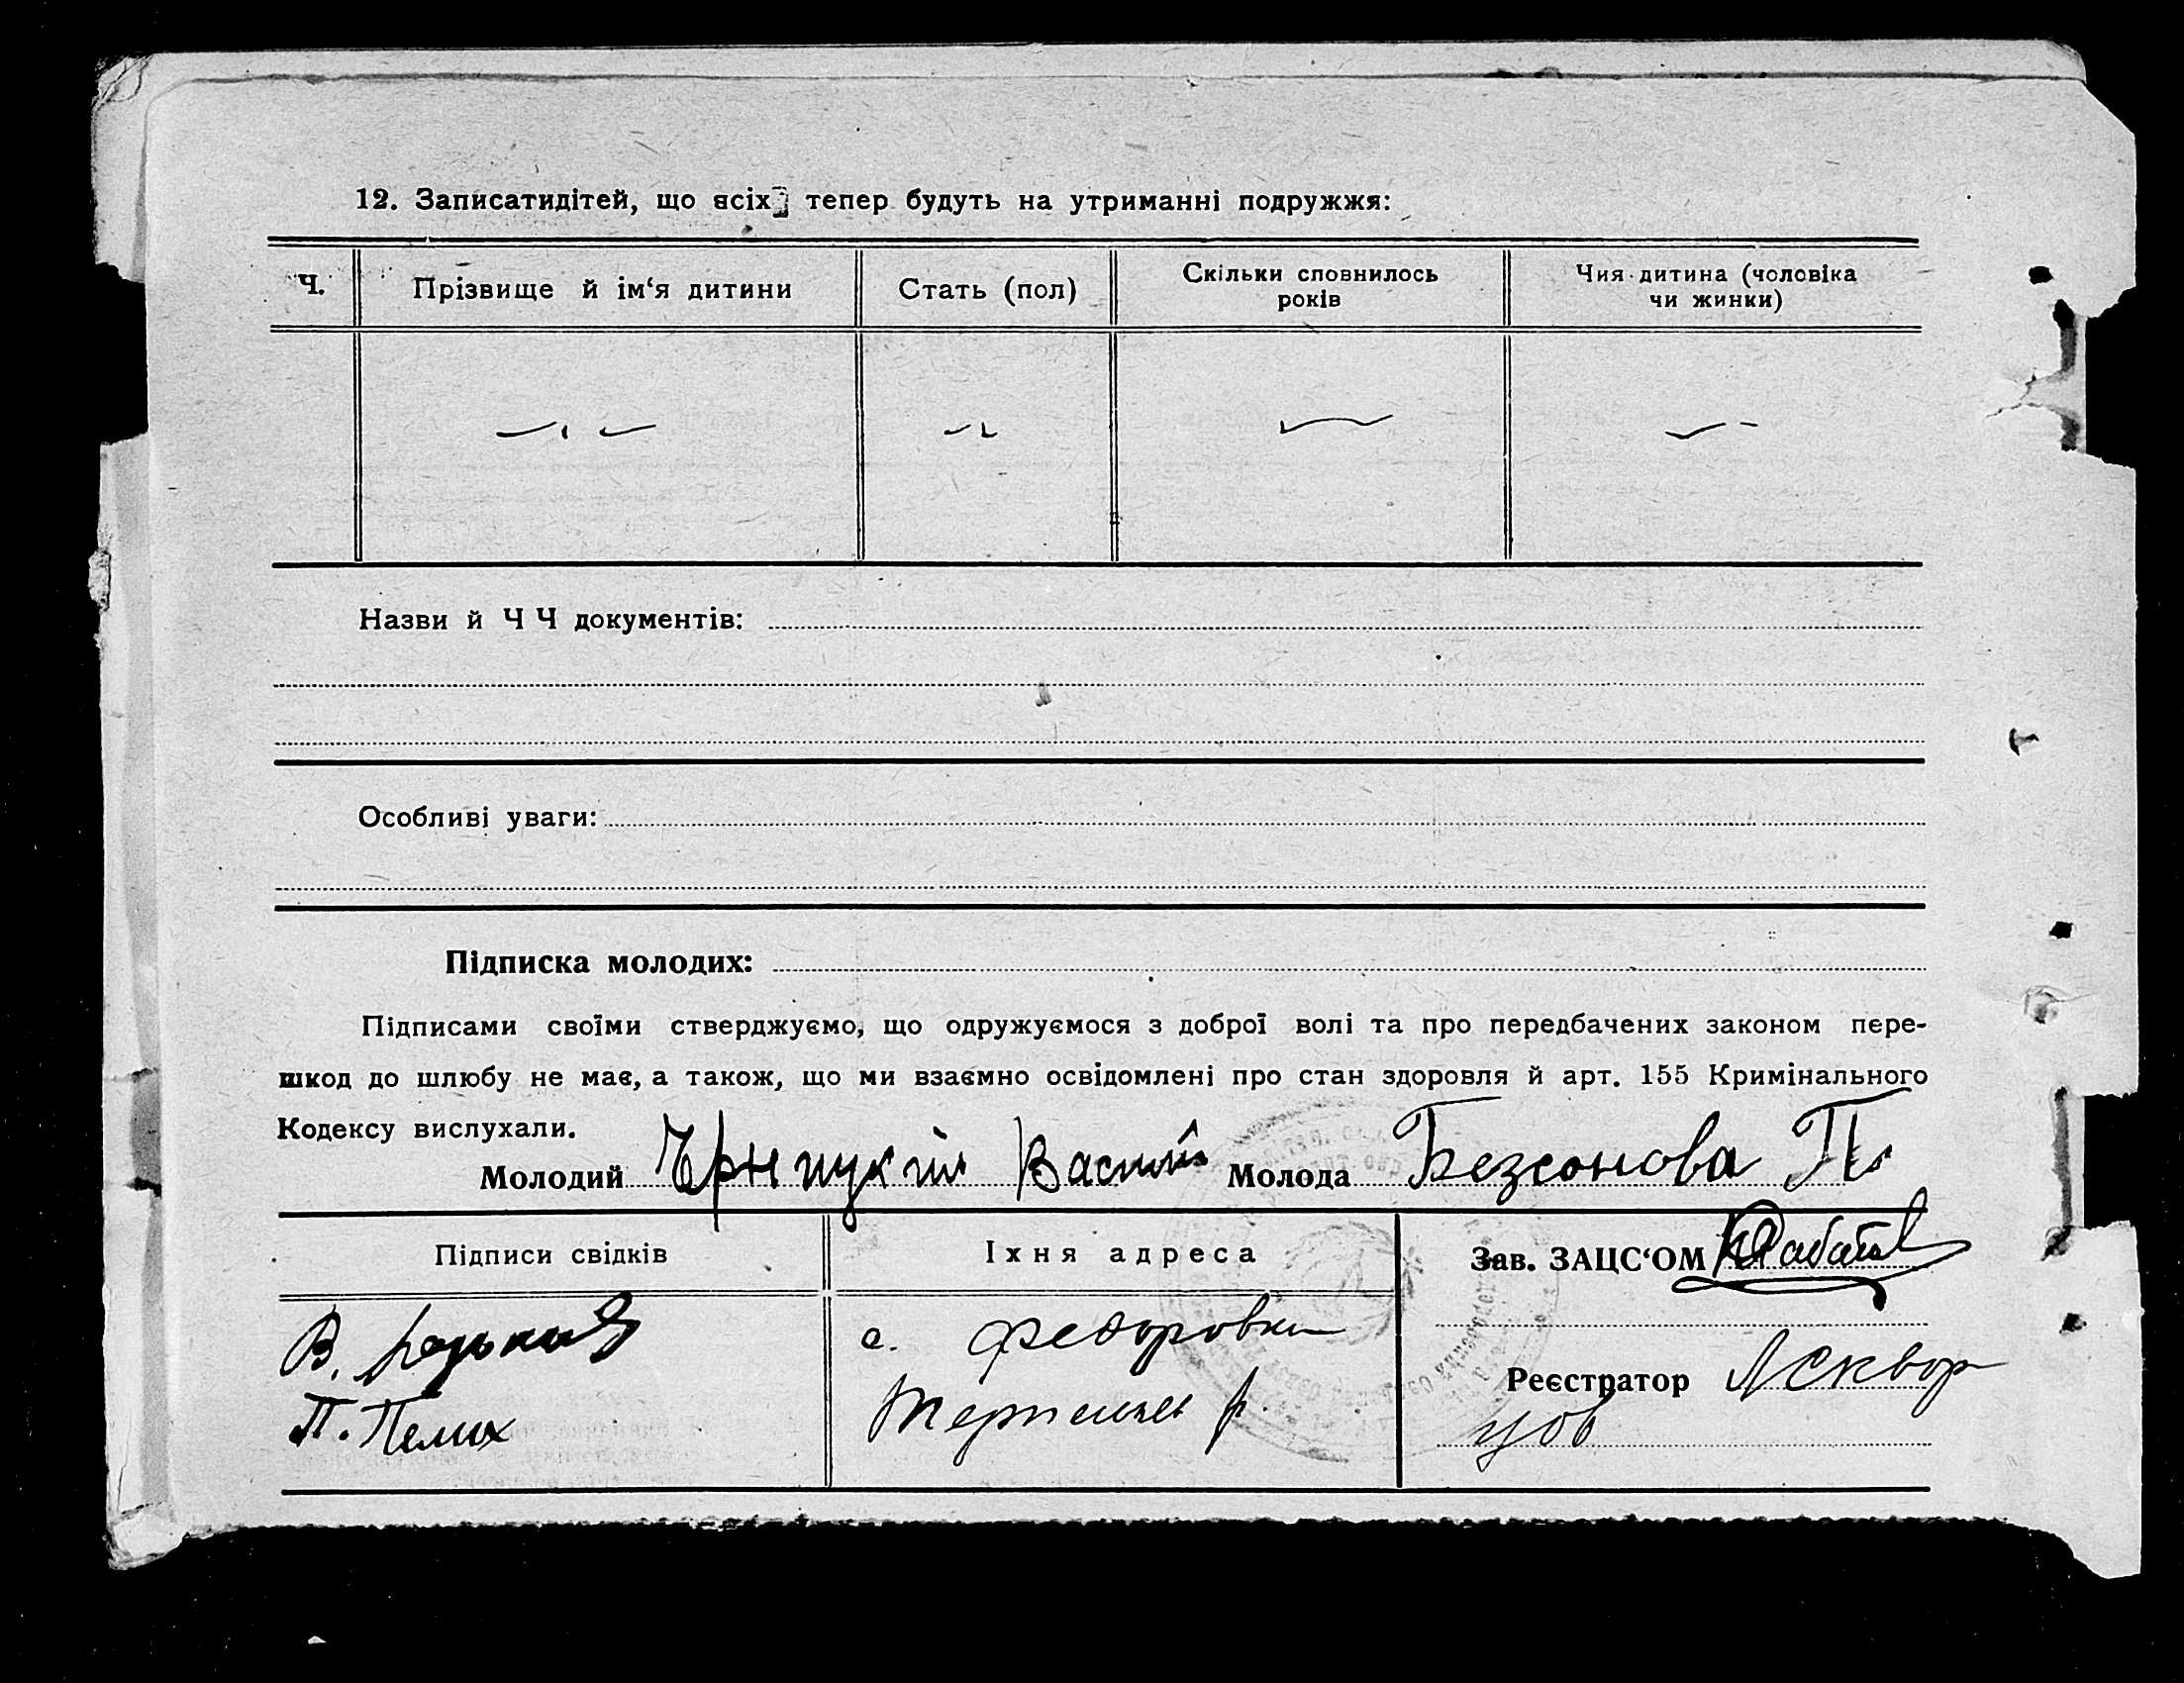 12. Записатидітей, що всіх тепер будуть на утриманні подружжя:
Ч.
Прізвище й ім‘я дитини
Стать (пол)
Скільки сповнилось
років
Чия дитина (чоловіка
чи жинки)
Назви й Ч Ч документів:
Особливі уваги:
Підписка молодих:
Підписами своїми стверджуємо, що одружуємося з доброї волі та про передбачених законом пере-
шкод до шлюбу не має, а також, що ми взаємно освідомлені про стан здоровля й арт. 155 Кримінального
Кодексу вислухали.
Молодий Василий Молода Безсонова П
Підписи свідків
Їхня адреса
Зав. ЗАЦС‘ОМ
В.
П. Пелих
с. Федоровка
р.
Реєстратор Н Сквор
цов